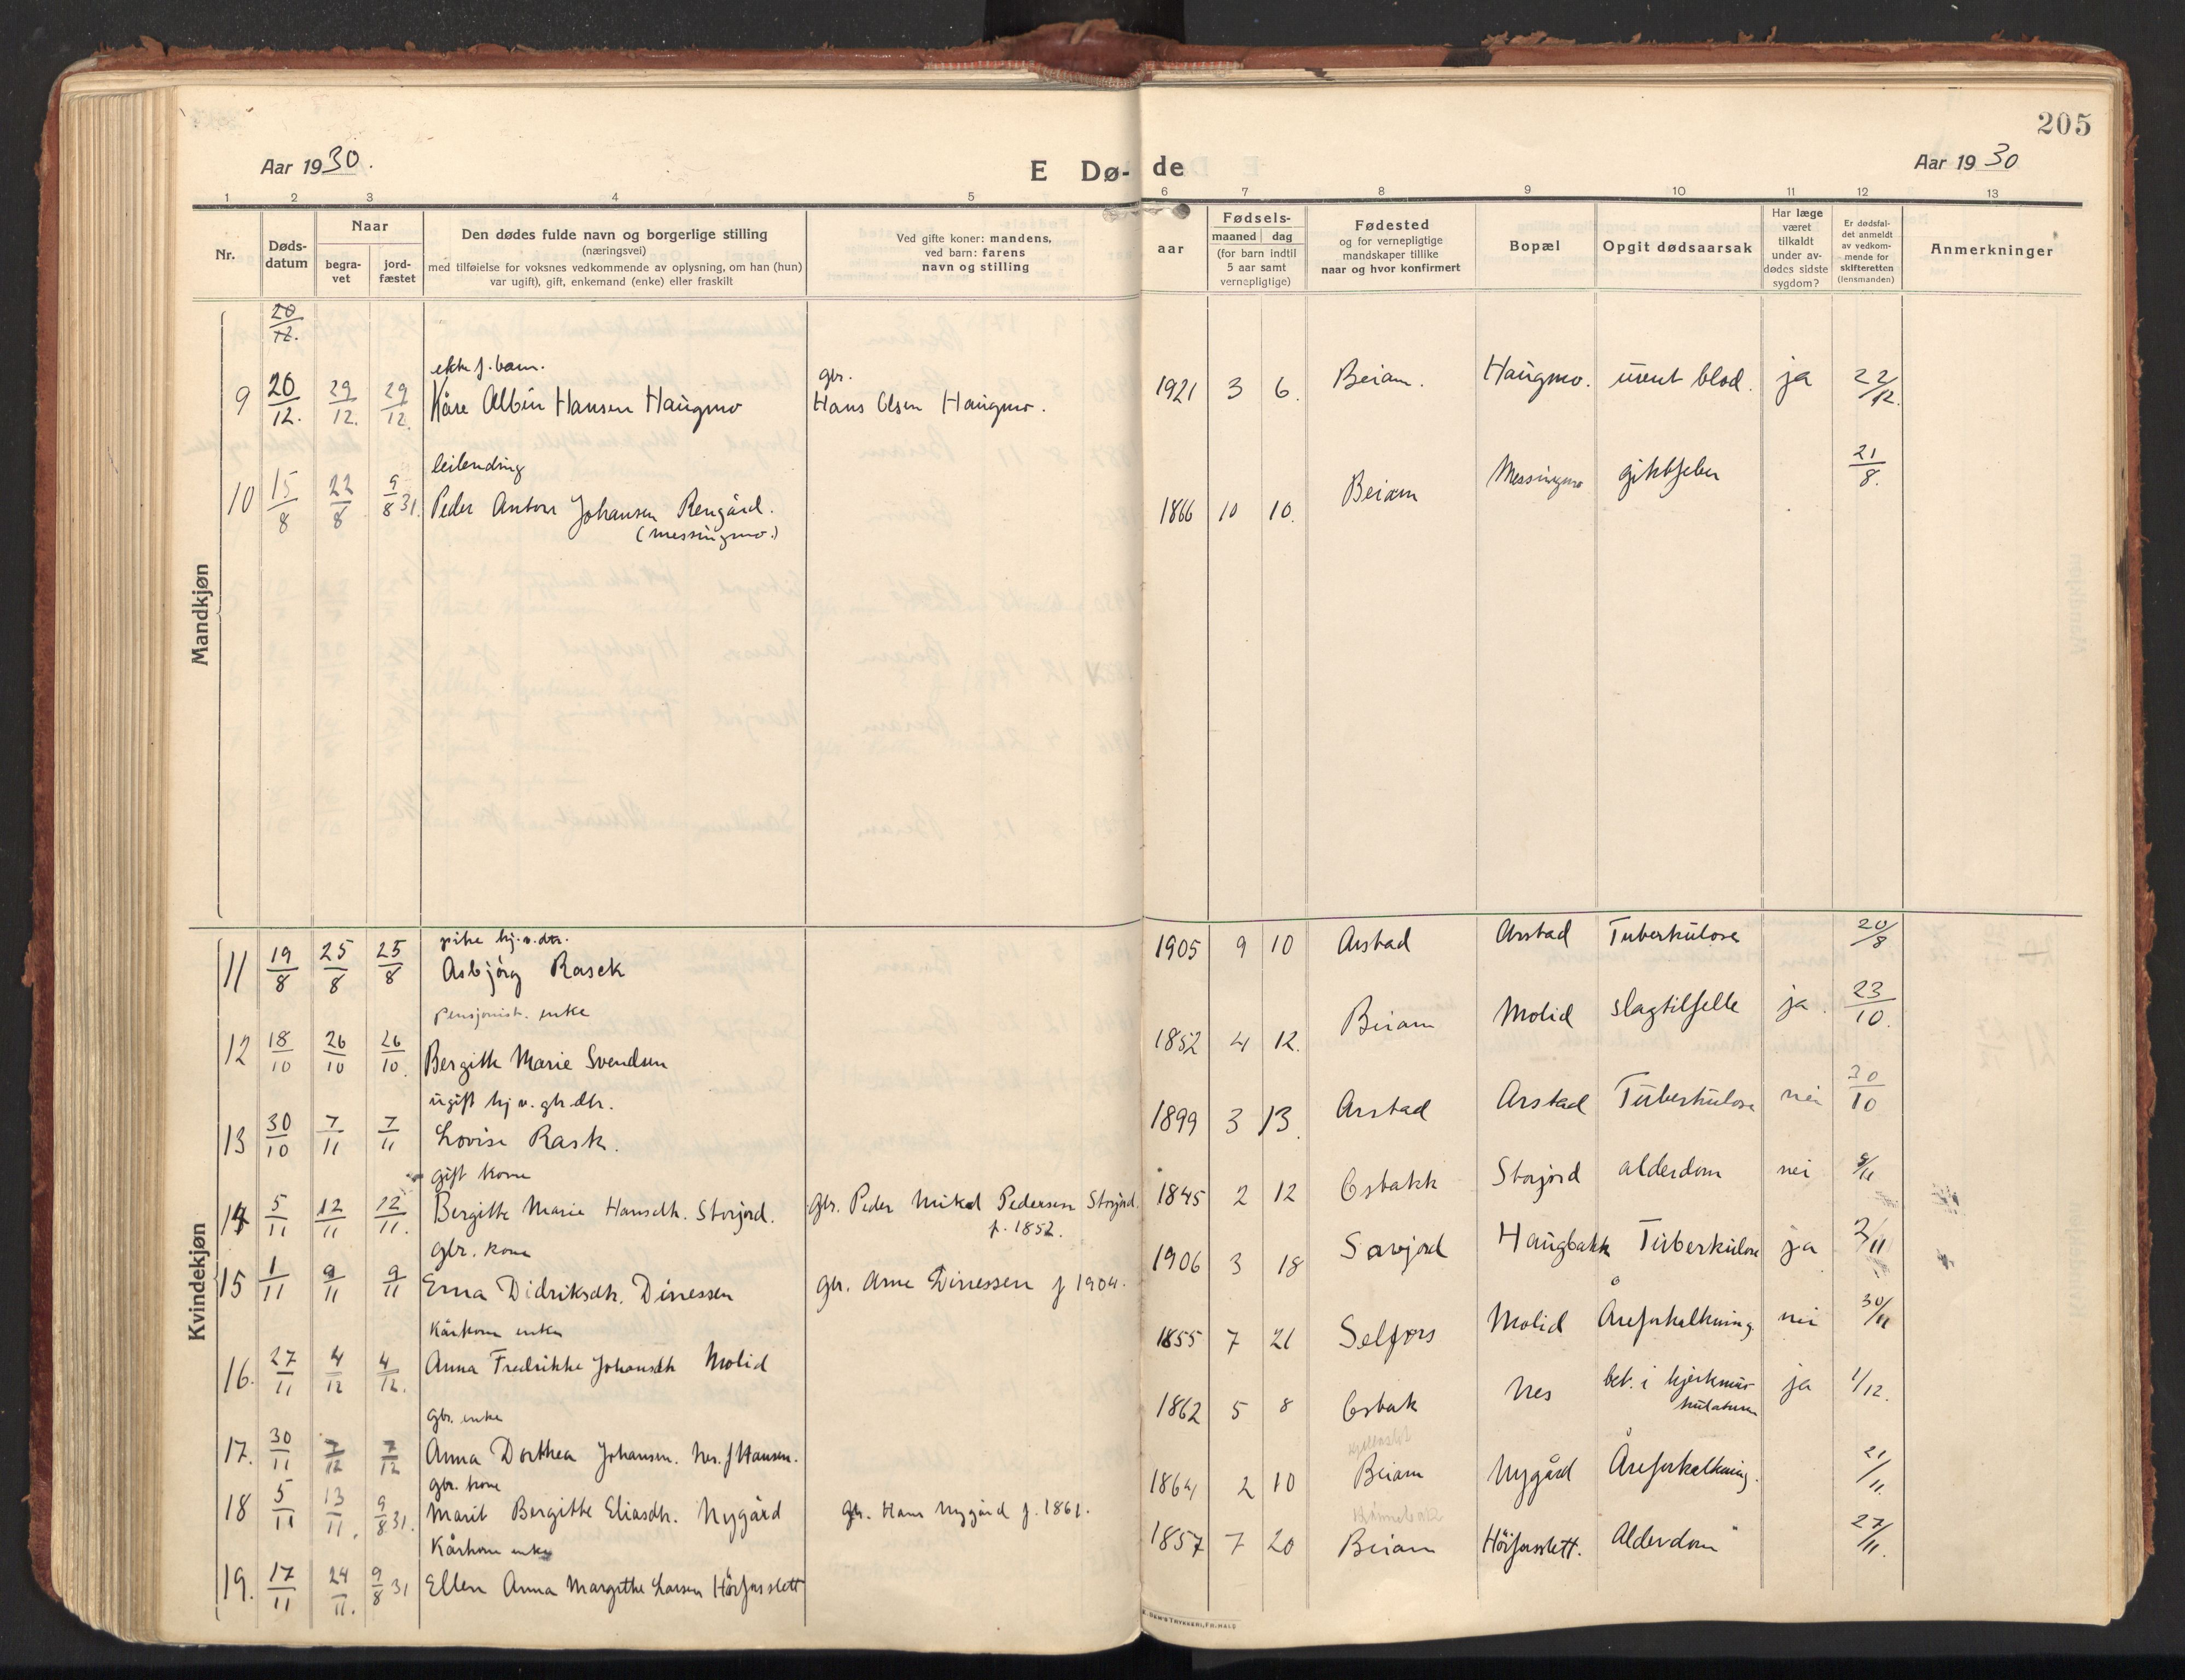 205
Aar 1930.
E Dø-
de
Aar 1930
1 2 3 4 5 6 7 8 9 10 11 12 13
Nr.
Døds-
datum
Naar
begra-
vet
jord-
fæstet
Den dødes fulde navn og borgerlige stilling
(næringsvei)
med tilføielse for voksnes vedkommende av oplysning, om han (hun)
var ugift), gift, enkemand (enke) eller fraskilt
Ved gifte koner: mandens,
ved barn: farens
navn og stilling
aar
Fødsels-
maaned dag
(for barn indtil
5 aar samt
vernepligtige)
Fødested
og for vernepligtige
mandskaper tillike
naar og hvor konfirmert
Bopæl
Opgit dødsaarsak
Har læge
været
tilkaldt
under av-
dødes sidste
sygdom?
Er dødsfal-
det anmeldt
av vedkom-
mende for
skifteretten
(lensmanden)
Anmerkninger
Mandkjøn
20/12.
ekte f. barn. gbr.
9 20/12. 29/12. 29/12. Kåre Albin Hansen Haugmo Hans Olsen Haugmo. 1921 3 6. Beiarn. Haugmo. urent blod. ja 22/12.
leilending
10 15/8 22/8 9/8 31. Peder Anton Johansen Rengård. 1866 10 10. Beiarn Messingmo giktfeber 21/8.
(Messingmo.)
Kvindekjøn
pike hj. v. dtr.
11 19/8 25/8 25/8 Asbjørg Rasch 1905 9 10 Arstad Arstad Tuberkulose 20/8
Pensjonist. enke
12 18/10 26/10 26/10. Bergitte Marie Svendsen 1852 4 12. Beiarn Molid slagtilfelle ja. 23/10.
ugift hj v. gbr. dtr.
13 30/10 7/11 7/11 Lovise Rask. 1899 3 13. Arstad Arstad Tuberkulose nei 30/10
gift kone
14 5/11 12/11 12/11. Bergitte Marie Hansdtr. Storjord. Gbr. Peder Mikal Pedersen Storjord. 1845 2 12 Osbakk Storjord alderdom nei
f. 1852.
gbr. kone
15 1/11 9/11 9/11 Erna Didriksdtr. Dinessen gbr. Arne Dinessen f 1904. 1906 3 18 Savjord Haugbakk Tuberkulose ja 3/11
Kårkone enke
16. 27/11 4/12 4/12. Anna Fredrikke Johansdtr Molid 1855 7 21 Selfors Molid Åreforkalkning nei 30/11
gbr. enke
17. 30/11 7/12 7/12 Anna Dorthea Johansen. Nes. f Hansen. 1862 5 8 Osbak Nes bet. i hjertemus- ja 1/12.
kulaturen
gbr. kone
18 5/11 13/11. 9/8 31. Marit Bergitte Eliasdtr. Nygård gbr. Hans Nygård f. 1861. 1864 2 10 Beiarn Nygård Åreforkalkning. 21/11.
Kårkone enke
19. 17/11 24/11. 9/8 31 Ellen Anna Margrethe Larsen Hörfusslett 1857 7 20 Beiarn Hörfusslett. Alderdom 27/11.